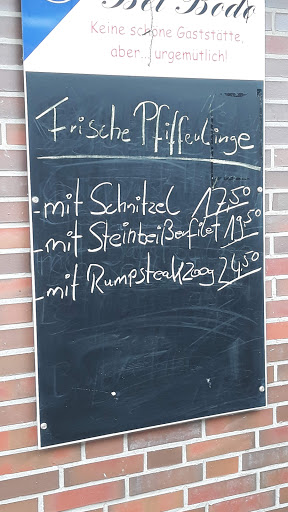 Bei Bodo
Keine schöne Gaststätte,
aber... urgemütlich!
Frische Pfifferlinge
-mit Schnitzel 17,50
-mit Steinbeißerfilet 19,50
-mit Rumpsteak 200g 24,50